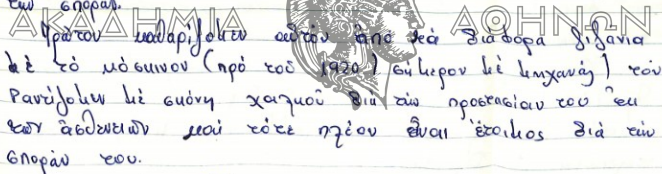 τὴν σποράν.
ΑΚΑΔΗΜΙΑ ΑΘΗΝΩΝ
Πρῶτον καθαρίζομεν αὐτόν ἀπό τά διάφορα ζιζάνια
μέ τό κόσκινον (πρό τοῦ 1920) σήμερον μέ μηχανάς) τόν
Ραντίζομεν μέ σκόνη χαλκοῦ διά τήν προστασίαν του ἐκ
τῶν ἀσθενειῶν καί τότε πλέον εἶναι ἕτοιμος διά τήν
σποράν του.